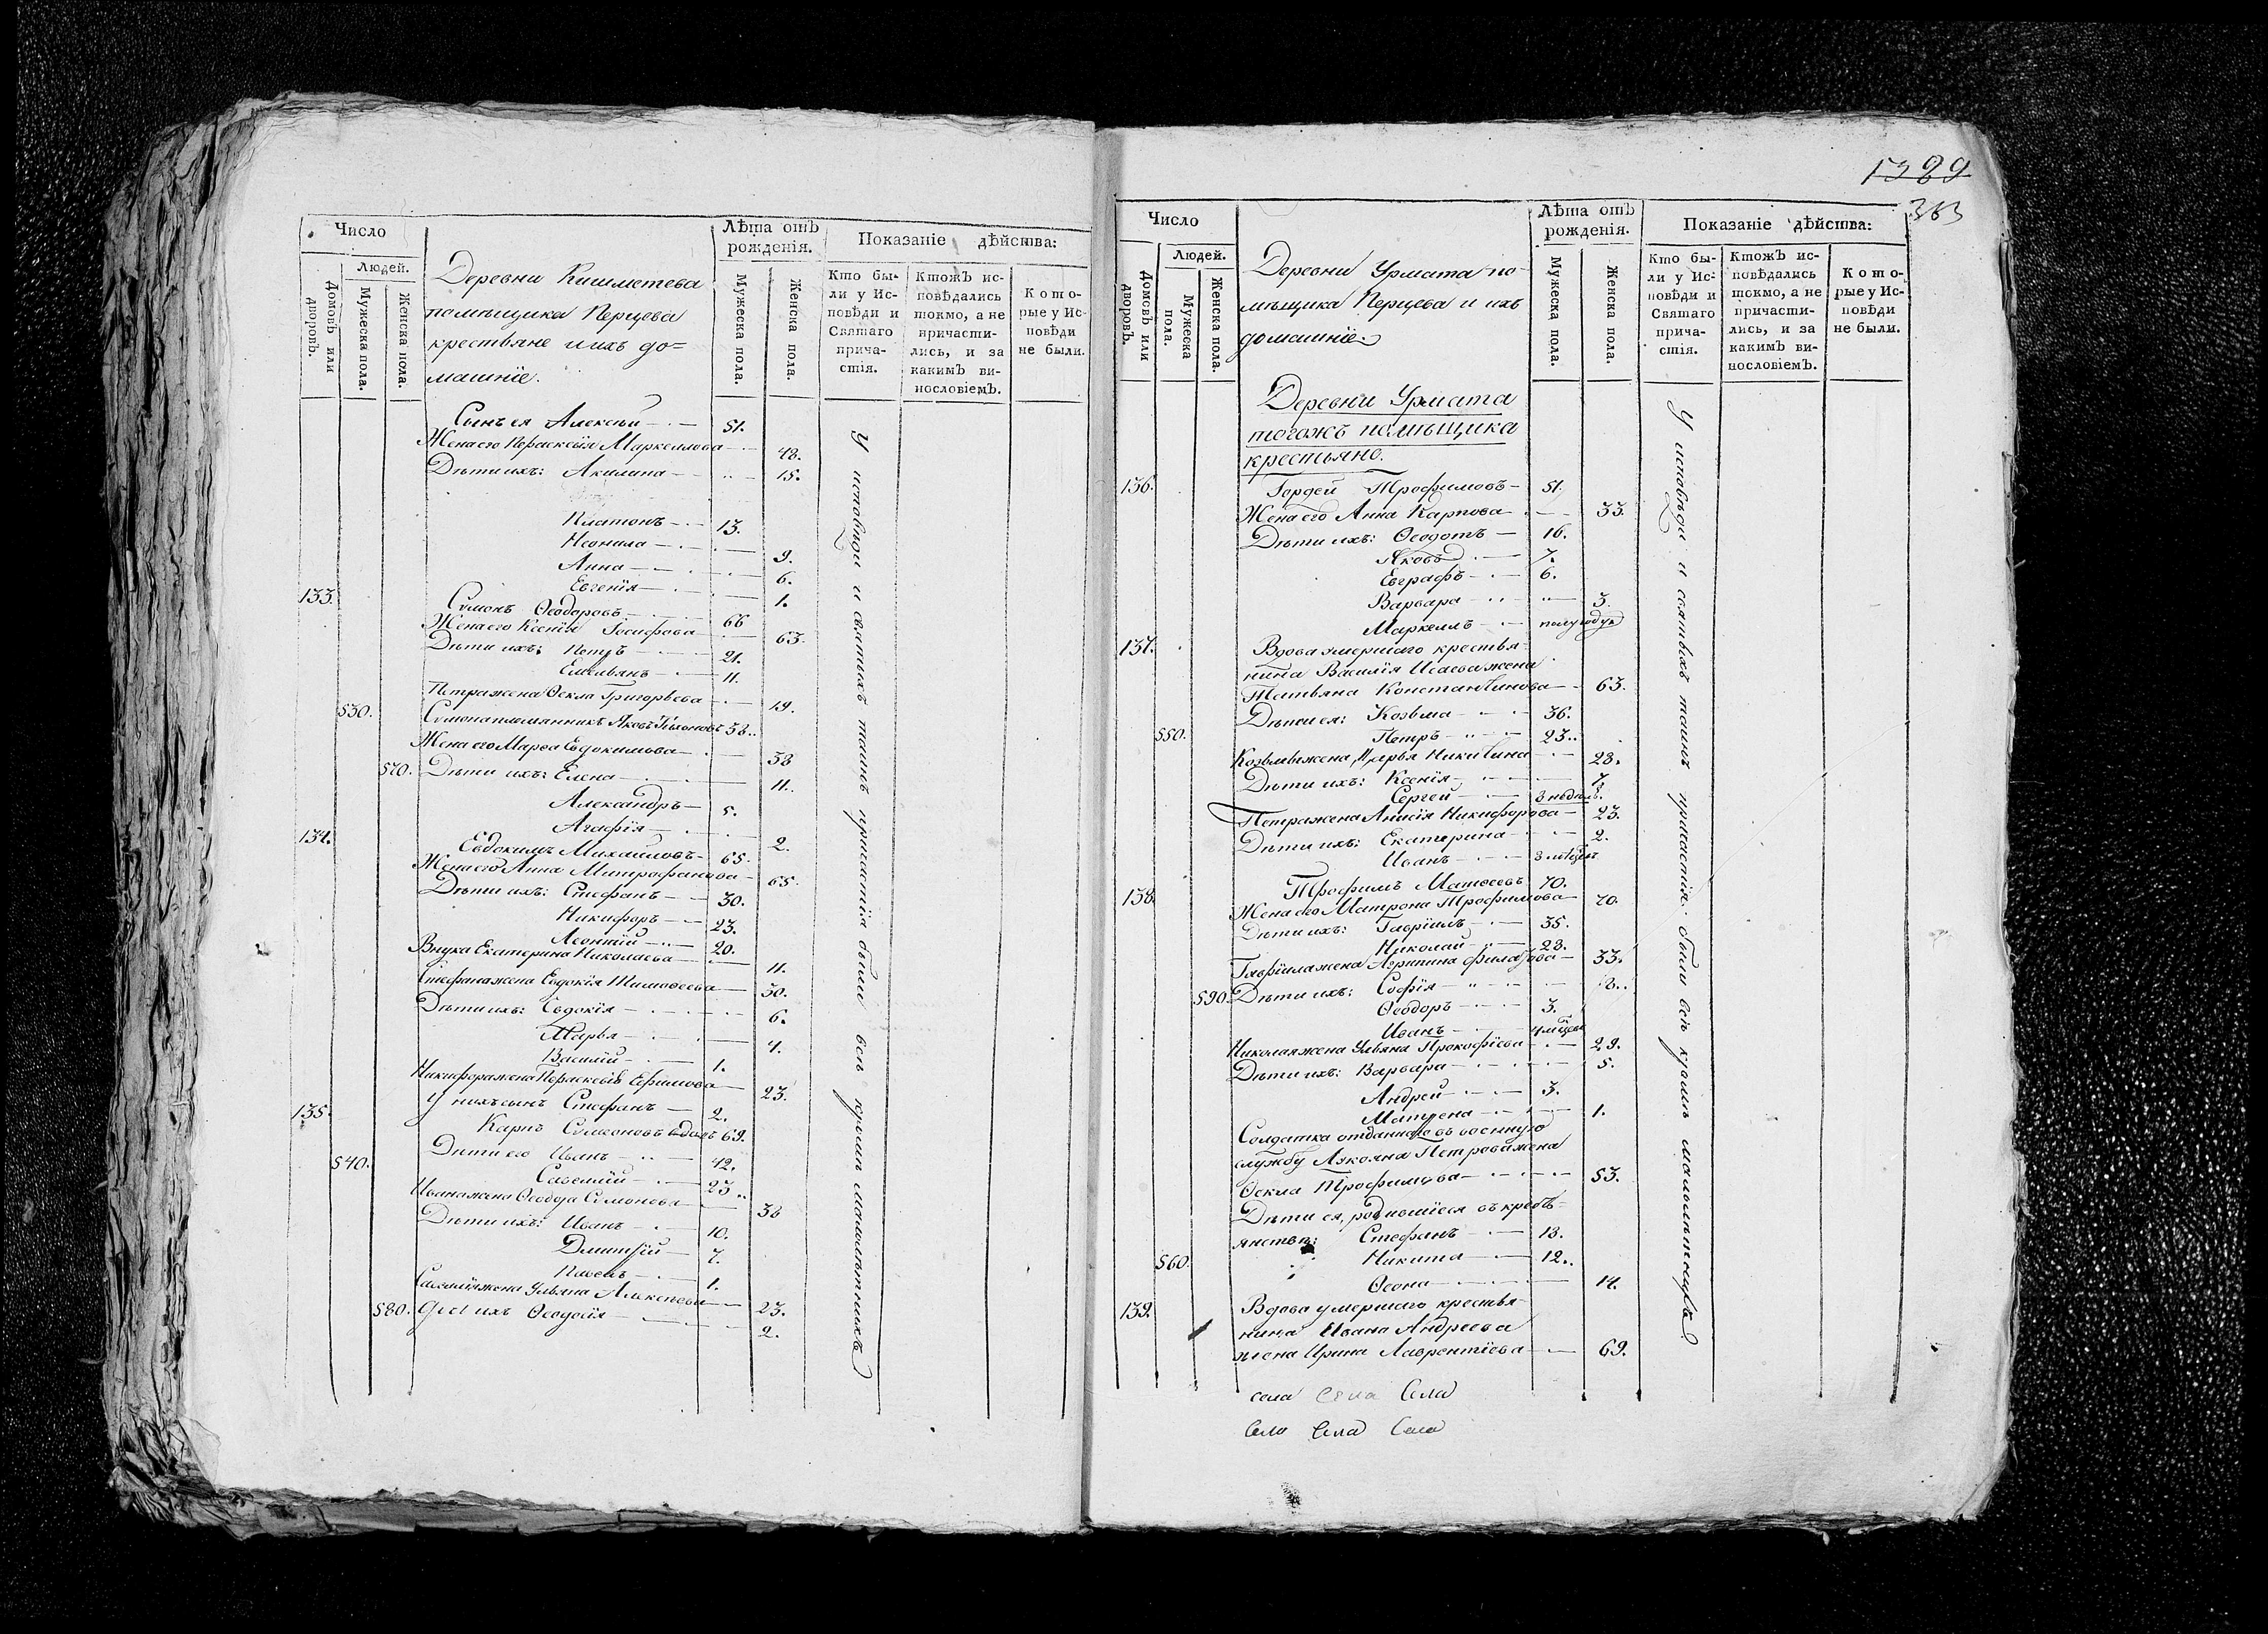 Число
Людей.
Домовъ или дворовъ.
Мужеска пола.
Женска пола.
Деревни Кишметева
помѣщика Перцова
крестьяне и ихъ до=
машнїе.
Лѣта отъ рожденія.
Мужеска пола.
Женска пола.
Показаніе дѣйства:
Кто бы-
ли у Ис-
повѣди и
Святаго
прича-
стія.
Ктожъ ис-
повѣдались
токмо, а не
причасти-
лись, и за
какимъ ви-
нословіемъ.
Кото-
рые у Ис-
повѣди
не были.
Сынъ ея Алексѣй 51.
Жена его Параскевїя Маркеллова 48.
Дѣти ихъ: Акилина 15.
Платонъ 13.
Неонила 9.
Анна 6.
Евгенїя 1.
133. Сѵмонъ Ѳеодоровъ 66
Жена его Ксенїя Іосифова 63.
Дѣти ихъ: Петръ 21.
Емельянъ 11.
Петра жена Ѳекла Григорьева 19.
530. Сѵмона племянникъ Яковъ 38..
Жена его Марѳа Евдокимова 38
570. Дѣти ихъ: Елена 11..
Александръ 5.
Агафїя 2.
134. Евдокимъ Михайловъ 65.
Жена его Анна Митрофанова 65.
Дѣти ихъ: Стефанъ 30.
Никифоръ 23.
Леонтїй 20.
Внука Екатерина Николаева 11.
Стефана жена Евдокїя Тимоѳеева 30.
Дѣти ихъ: Евдокїя 6.
Марья 4.
Василїй 1.
Никифора жена Параскевїя Ефимова 23.
У нихъ сынъ Стефанъ 2.
135. Карпъ Сѵмеоновъ вдовъ 69.
540. Дѣти его Иванъ 42.
Савелїй 23..
Ивана жена Ѳеодора Сѵмонова 38
Дѣти ихъ: Иванъ 10.
Димитрїй 7.
Павелъ 1.
Савелїя жена Ульяна Алексѣева 23.
580. Дѣти ихъ Ѳеодосїя 2.
У исповѣди и святыхъ таинъ причастїя были всѣ кромѣ малолѣтнихъ
1389
363
Число
Людей.
Домовъ или дворовъ.
Мужеска пола.
Женска пола.
Деревни Урмата по-
мѣщика Перцова и ихъ
домашнїе.
Лѣта отъ рожденія.
Мужеска пола.
Женска пола.
Показаніе дѣйства:
Кто бы-
ли у Ис-
повѣди и
Святаго
прича-
стія.
Ктожъ ис-
повѣдались
токмо, а не
причасти-
лись, и за
какимъ ви-
нословіемъ.
Кото-
рые у Ис-
повѣди
не были.
Деревни Урмата
тогожъ помѣщика
крестьяне.
136. Гордей Трофимовъ 51.
Жена его Анна Карпова 33.
Дѣти ихъ: Ѳеодотъ 16.
Яковъ 7.
Евграфъ 6.
Варвара 3.
Маркеллъ полугоду
137. Вдова умершаго крестья-
нина Василїя Исаева жена
Татьяна Константинова 63.
Дѣти ея: Козьма 36.
550. Петръ 23..
Козьмы жена Марья Никитина 28.
Дѣти ихъ: Ксенїя 7.
Сергей 3 недѣль.
Петра жена Анисїя Никифорова 23.
Дѣти ихъ: Екатерина 2.
Иванъ 3 мѣсяц.
138. Трофимъ Матвѣевъ 70.
Жена его Матрона Трофимова 70.
Дѣти ихъ: Гаврїилъ 35.
Николай 28.
Гаврїила жена Агрипина 33.
590. Дѣти ихъ: Софїя 8..
Ѳеодоръ 3.
Иванъ 4 мѣсец
Николая жена Ульяна Прокофїева 29.
Дѣти ихъ: Варвара 5.
Андрей 3.
Матрена 1.
Солдатка отданнаго въ военную
службу Лукояна Петрова жена
Ѳекла Трофимова 53.
Дѣти ея, родившїеся въ кресть-
янствѣ: Стефанъ 18.
560. Никита 12..
Ѳеона 14.
139. Вдова умершаго крестья-
нина Ивана Андреева
жена Ирина Лаврентїева 69.
У исповѣди и святыхъ таинъ причастїя были всѣ кромѣ малолѣтнихъ
села села Села
Села Села Села